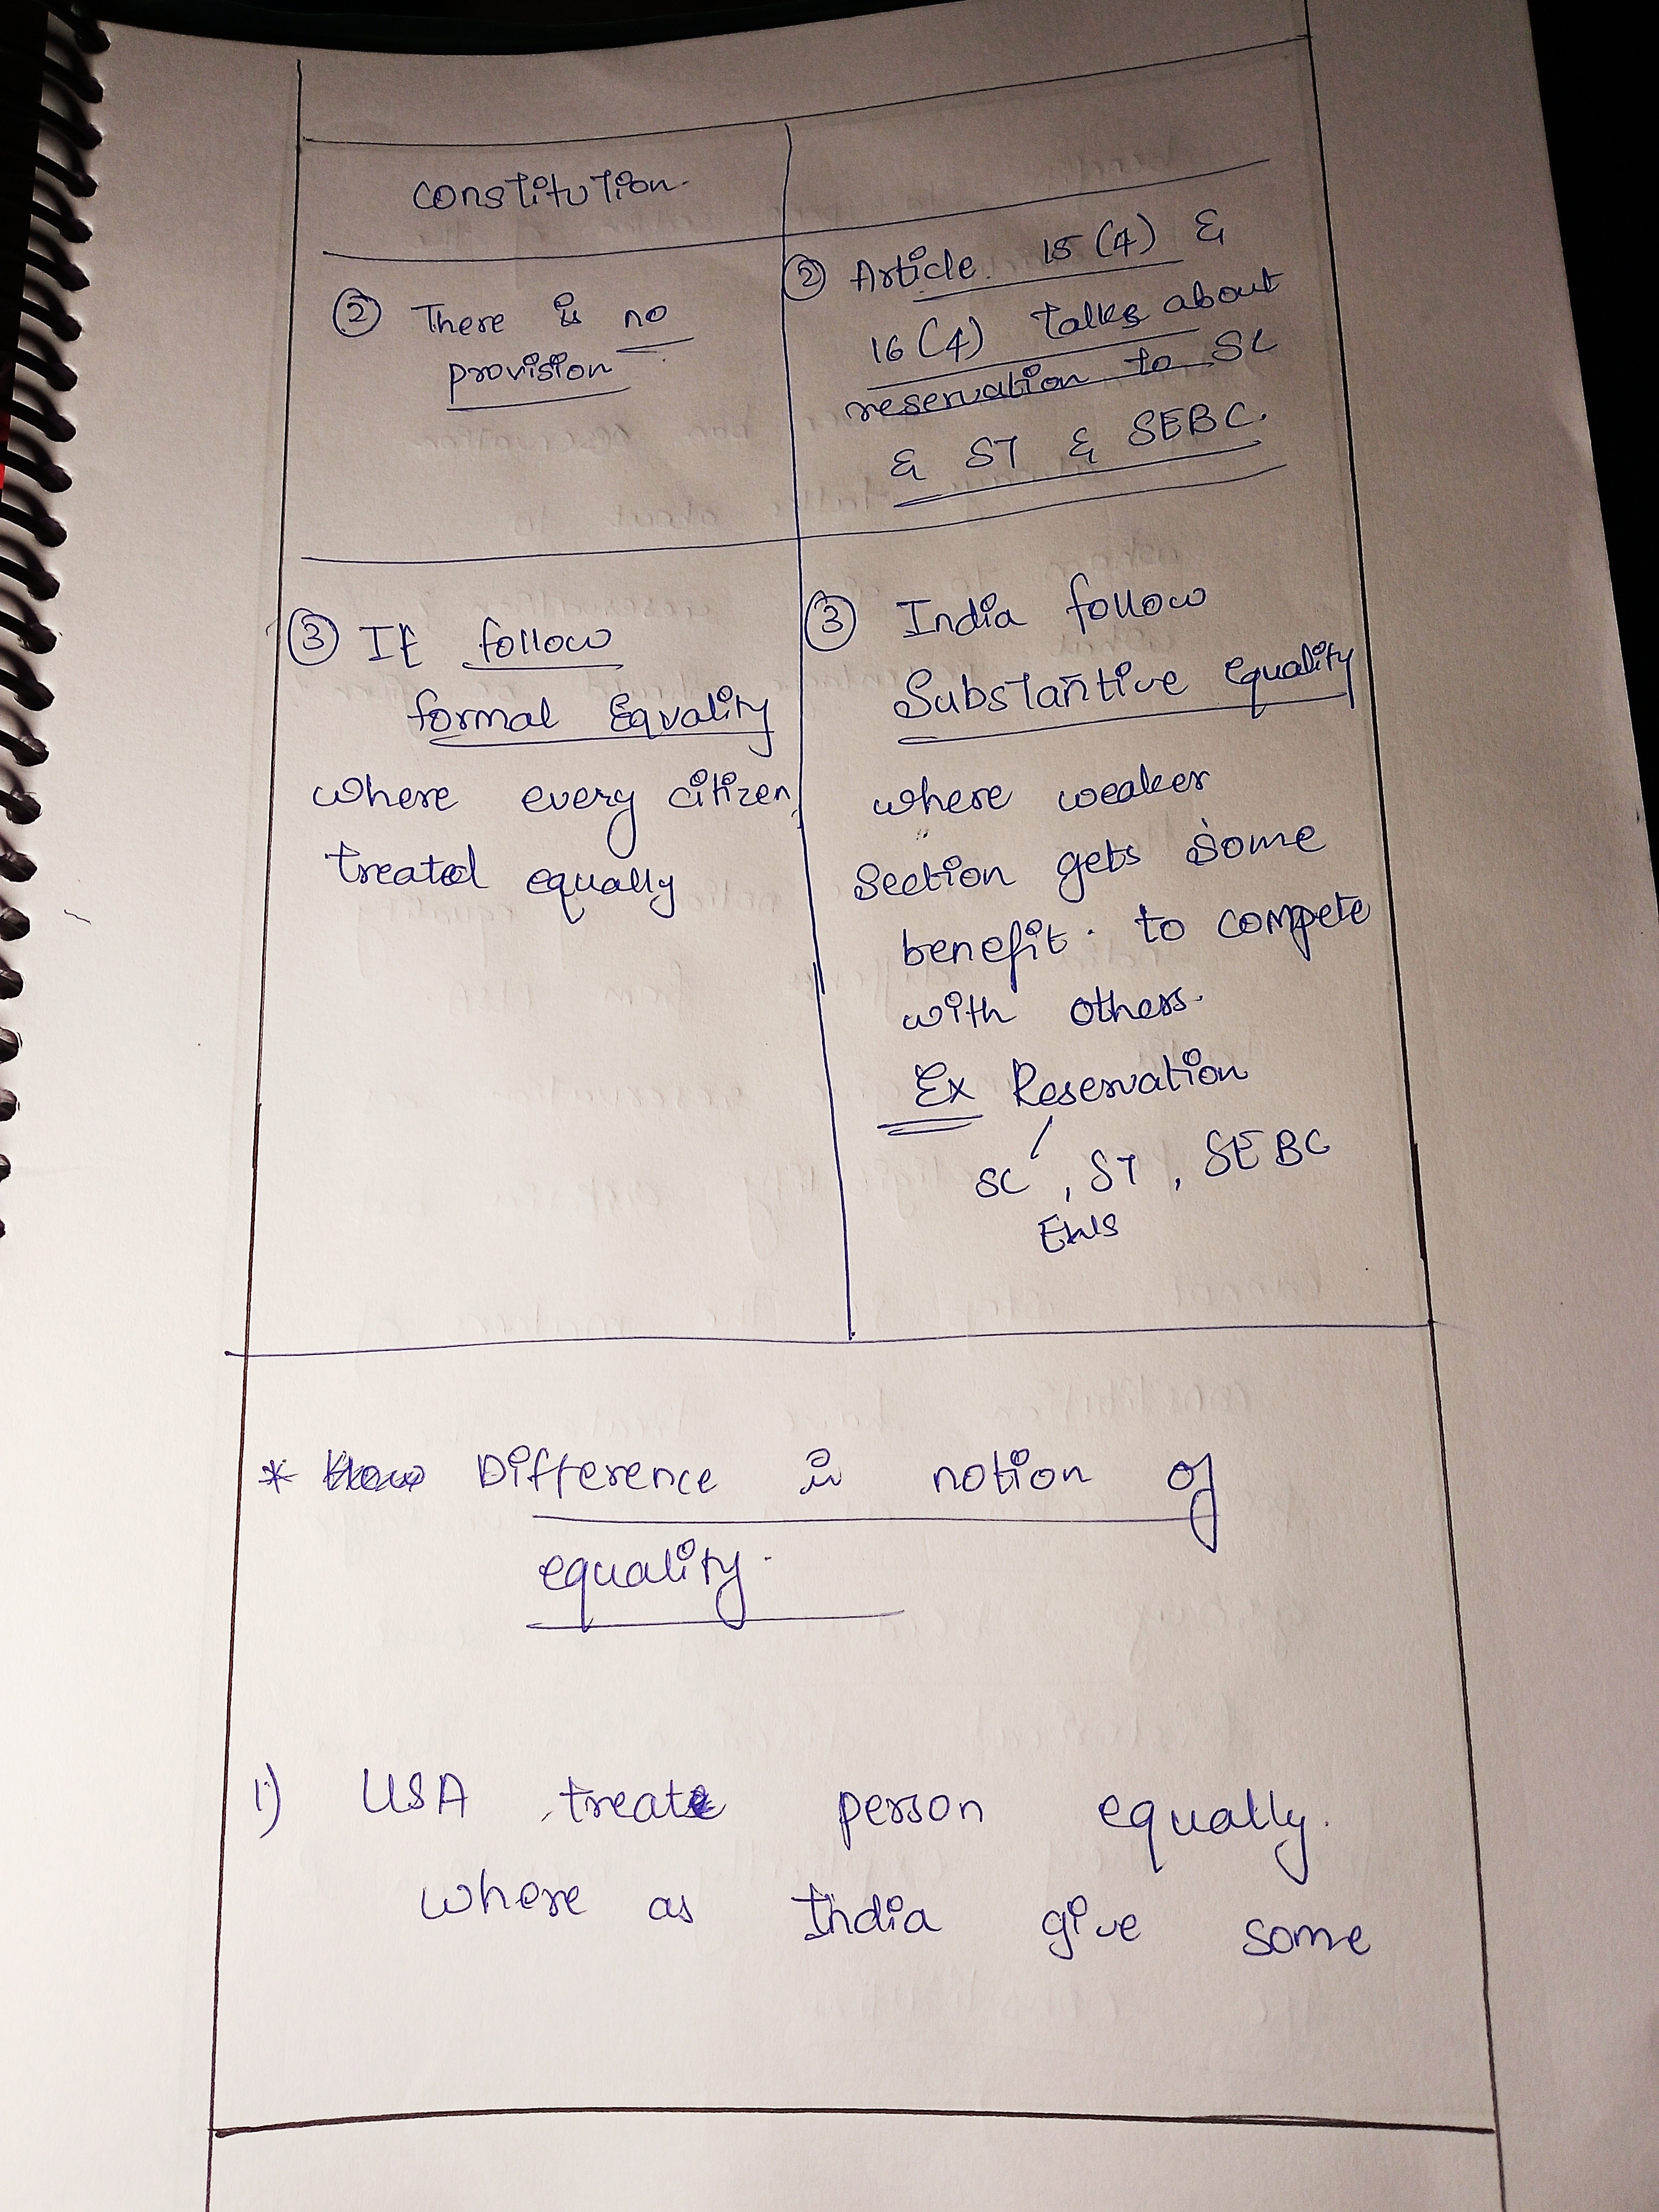 constitution.
② There is no
provision
② Article 15 (4) &
16 (4) talks about
reservation to SC
& ST & SEBC.
③ It follow
formal Equality
where every citizen
treated equally
③ India follow
Substantive equality
where weaker
section gets some
benefit. to compete
with others.
Ex Reservation
SC, ST, SEBC
EWS
* How Difference in notion of
equality.
1) USA treate person equally.
where as India give some